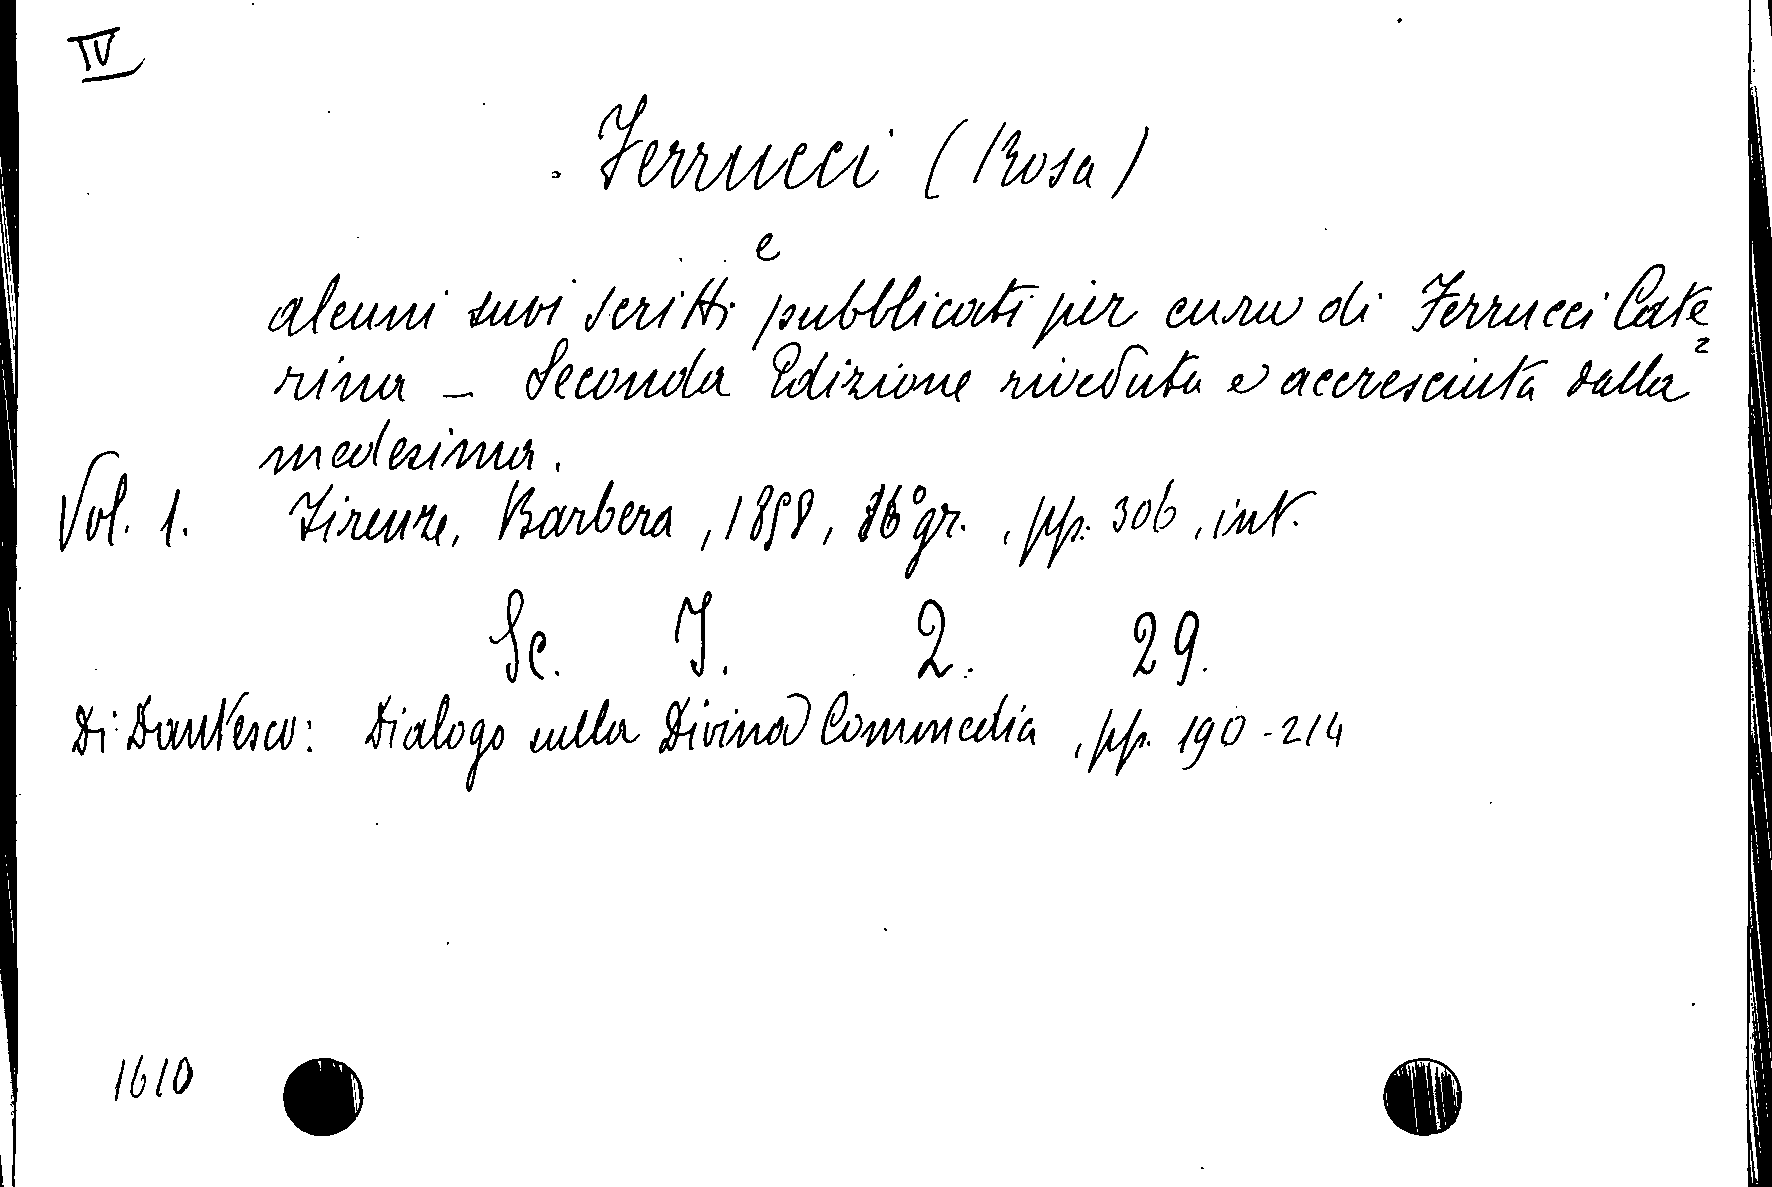 IV
Ferrucci (Rosa)
e
alcuni suoi scritti pubblicati per cura di Ferrucci Cate=
rina - Seconda Edizione riveduta e accresciuta dalla
medesima.
Vol. 1. Firenze, Barbera, 1858, 16° gr., pp. 306, int.
Sc. I. 2. 29.
Di Dantesco: Dialogo sulla Divina Commedia, pp. 190-214
1610